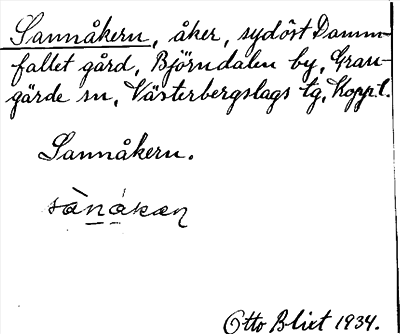 Sannåkern, åker, sydöst Damm-
fallet gård, Björndalen by, Gran-
gärde sn, Västerbergslags tg, Koppl.
Sannåkern.
Otto Blixt 1934.